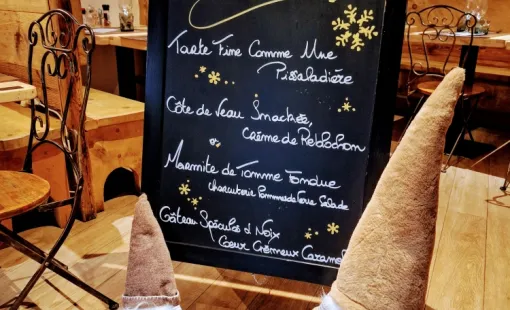 Tarte Fine Comme Une
Pissaladière
Côte de Veau Snackée,
Crème de Reblochon
or
Marmite de Tomme Fondue
Charcuterie Pommes de Terre Salade
Gâteau Spéculos & Noix
Cœur Crémeux Caramel